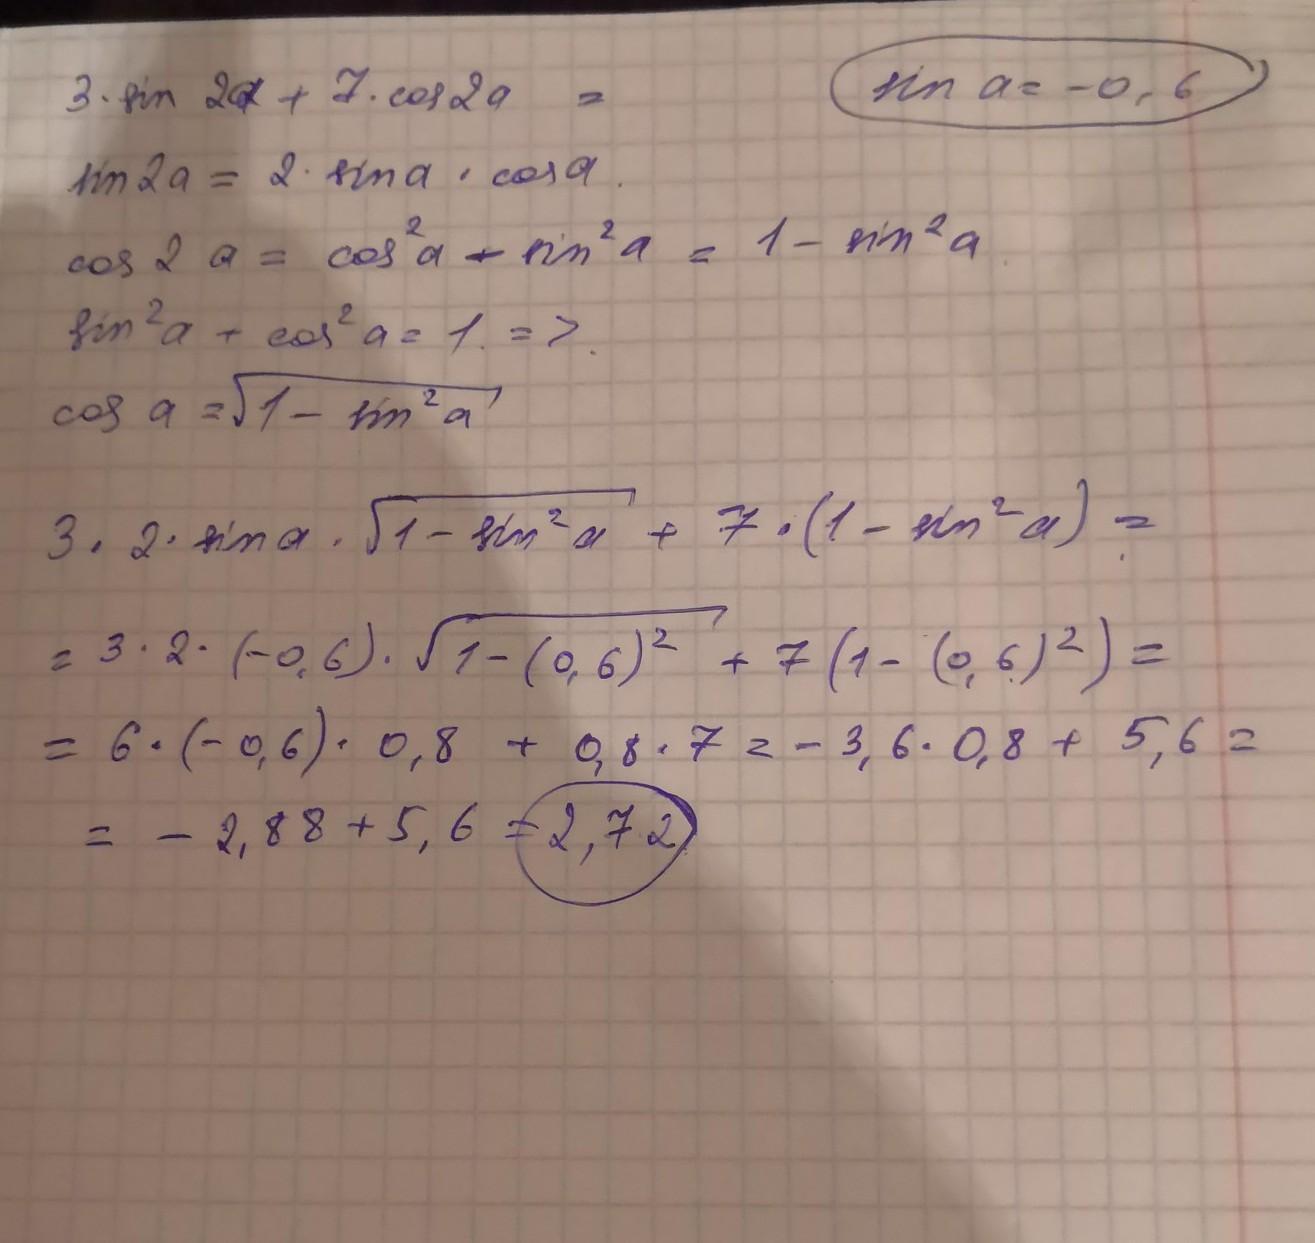 3·sin 2a + 7·cos2a =
sin a = -0,6
sin2a = 2·sina·cosa.
cos 2a = cos²a - sin²a = 1 - sin²a.
sin²a + cos²a = 1. =>.
cos a = √(1 - sin²a)
3·2·sina·√(1 - sin²a) + 7·(1 - sin²a) =
= 3·2·(-0,6)·√(1-(0,6)²) + 7(1-(0,6)²) =
= 6·(-0,6)·0,8 + 0,8·7 = -3,6·0,8 + 5,6 =
= -2,88 + 5,6 = 2,72